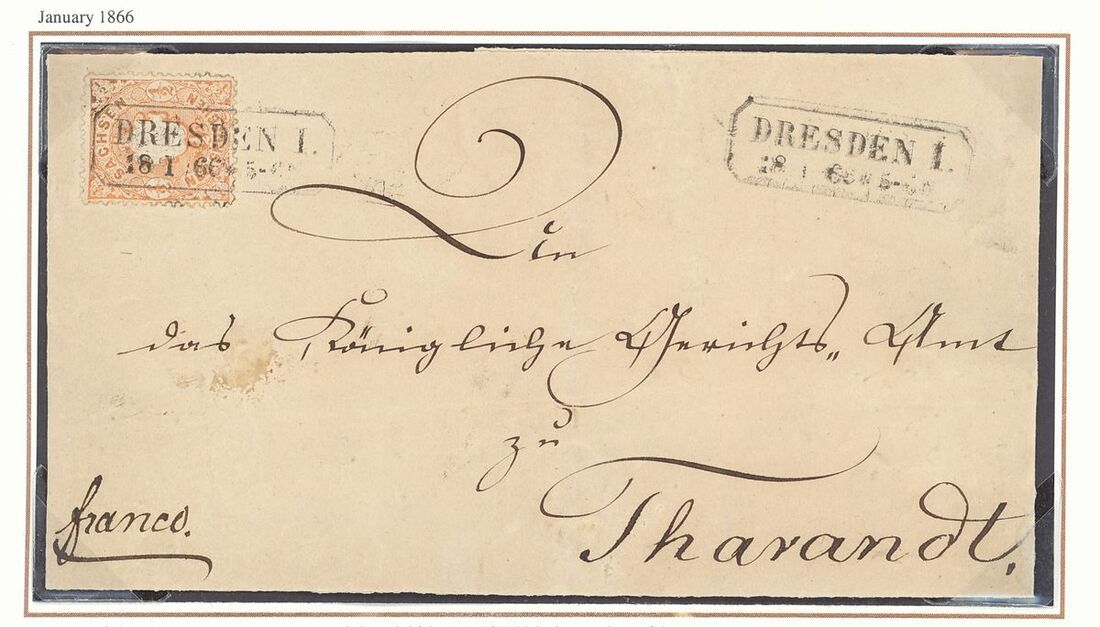 January 1866
SACHSEN
1/2
DRESDEN I.
18 1 66 * 5-
DRESDEN I.
18 1 66 * 5-
An
das Königliche Gerichts„ Amt
zu
Tharandt.
franco.